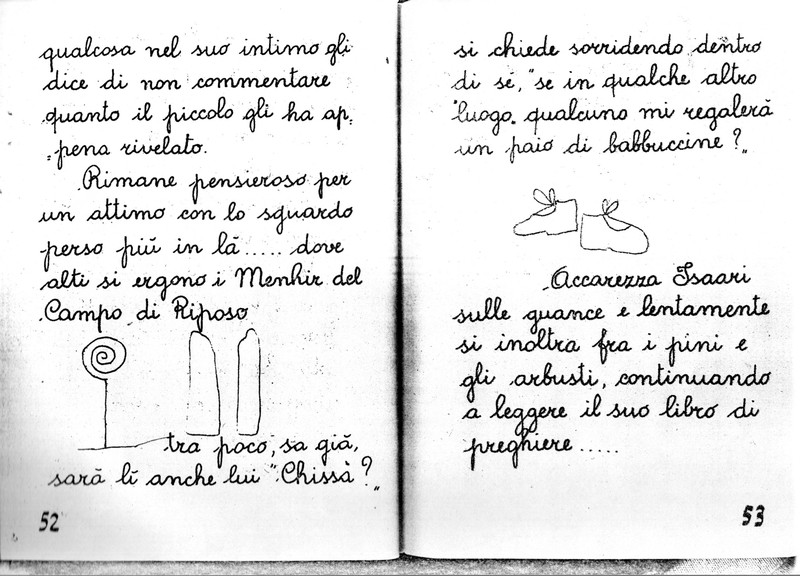 qualcosa nel suo intimo gli
dice di non commentare
quanto il piccolo gli ha ap:
:pena rivelato.
Rimane pensieroso per
un attimo con lo sguardo
perso più in là..... dove
alti si ergono i Menhir del
Campo di Riposo
tra poco, sa già,
sarà lì anche lui "Chissà?„
52
si chiede sorridendo dentro
di sé, "se in qualche altro
luogo. qualcuno mi regalerà
un paio di babbuccine?„
Accarezza Isaari
sulle guance e lentamente
si inoltra fra i pini e
gli arbusti, continuando
a leggere il suo libro di
preghiere.....
53